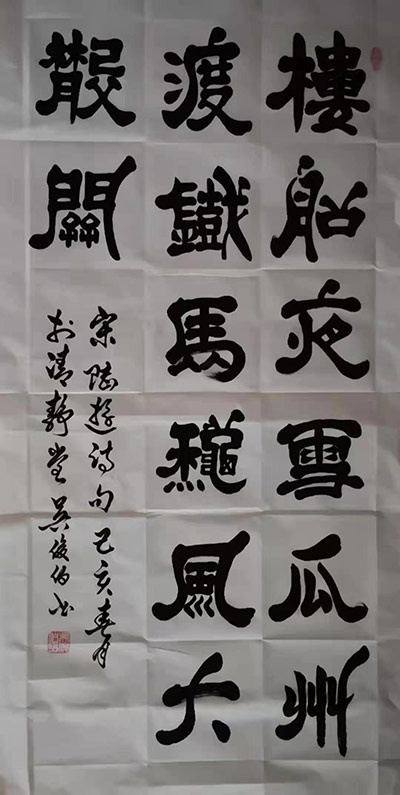 樓船夜雪瓜州
渡鐵馬龝風大
散關
宋陸遊诗句己亥春月
於清靜堂吳俊伯书